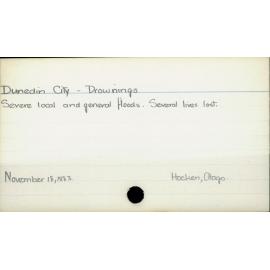 Dunedin City - Drownings
Severe local and general floods. Several lives lost.
November 18, 
Hocken, Otago.